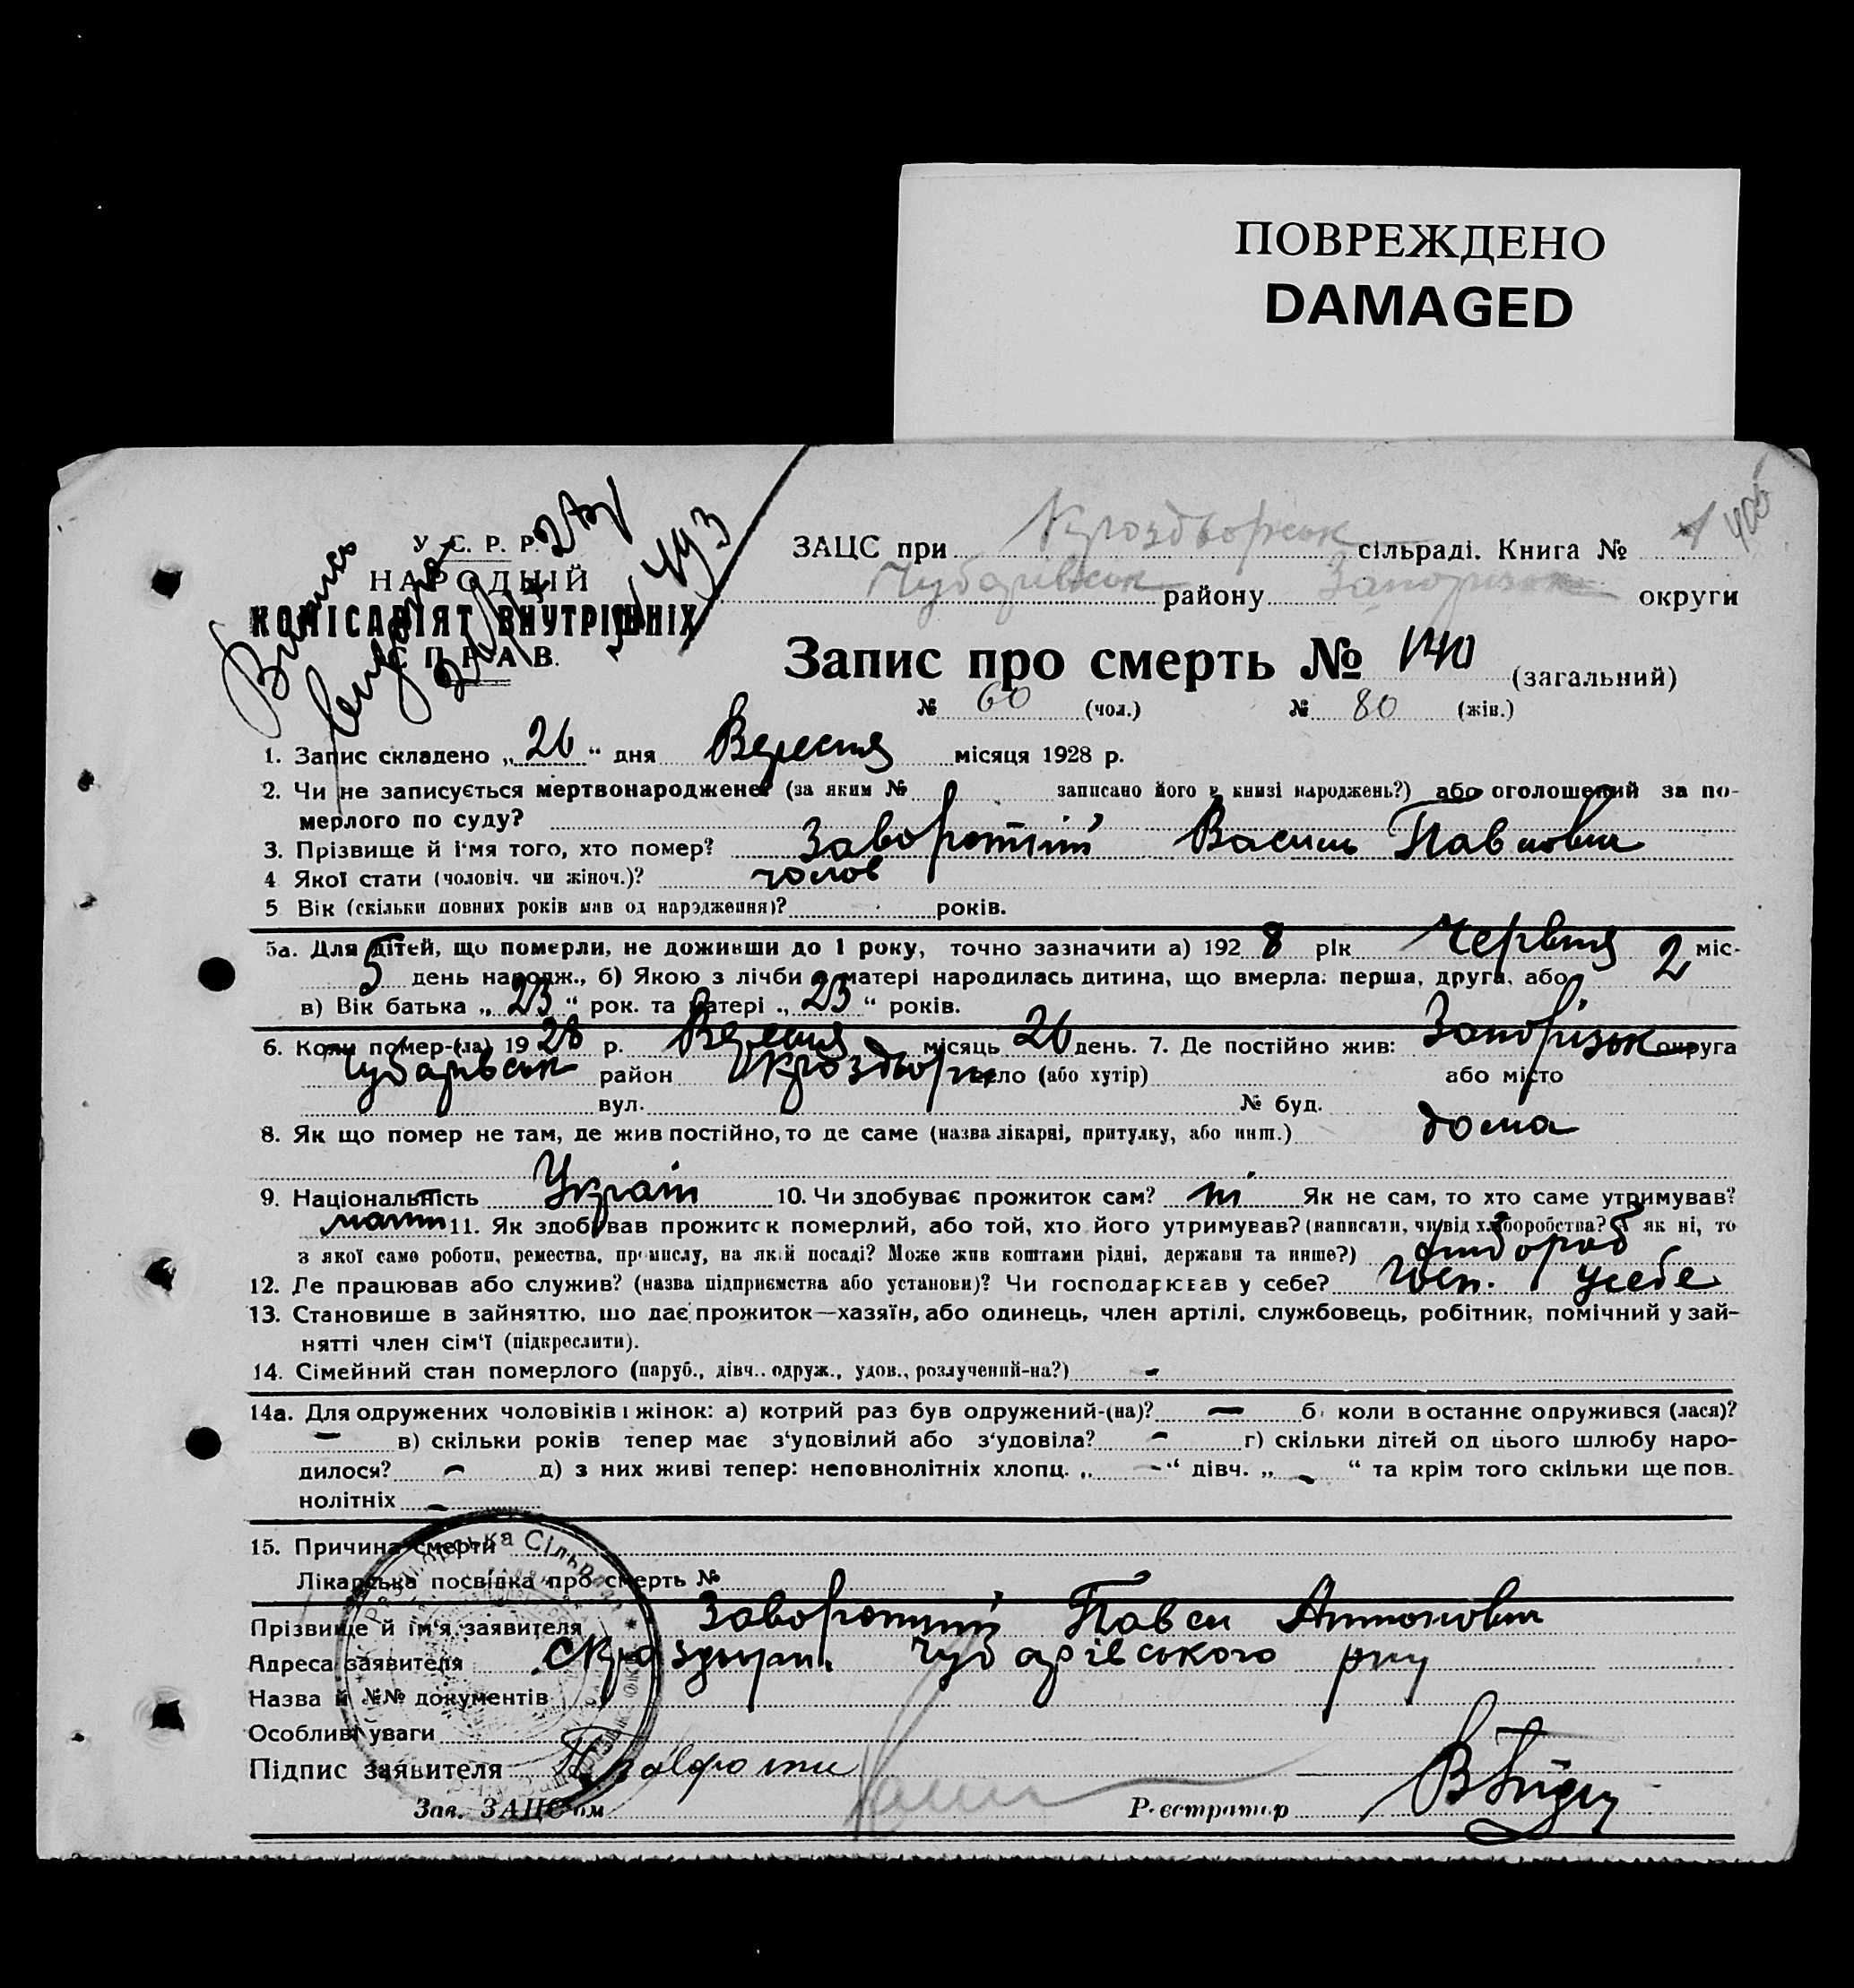 ПОВРЕЖДЕНО
DAMAGED
У. С. Р. Р.
НАРОДНІЙ
КОМІСАРІЯТ ВНУТРІШНІХ
СПРАВ.
493
406
ЗАЦС при Кроздворськ сільраді. Книга № 1
Чубарівськ району Запорізьк округи
Запис про смерть № 140 (загальний)
№ 60 (чол.) № 80 (жін.)
1. Запис складено „ 26 “ дня Вересня місяця 1928 р.
2. Чи не записується мертвонароджене? (за яким № записано його в книзі народжень?) або оголошений за по-
мерлого по суду?
3. Прізвище й ім'я того, хто помер? Заворотній Василь Павлович
4 Якої стати (чоловіч. чи жіноч.)? чолов
5 Вік (скільки повних років мав од народження)? років.
5а. Для дітей, що померли, не доживши до 1 року, точно зазначити а) 192 8 рік Червня міс-
5 день народж., б) Якою з лічби у матері народилась дитина, що вмерла: перша, друга, або 2
в) Вік батька „ 23 “ рок. та матері „ 23 “ років.
6. Коли помер-(ла) 19 28 р. Вересня місяць 26 день. 7. Де постійно жив: Запорізьк округа
Чубарівськ район Кроздори село (або хутір) або місто
вул. № буд.
8. Як що помер не там, де жив постійно, то де саме (назва лікарні, притулку, або инш.) дома
9. Національність Україн 10. Чи здобуває прожиток сам? ні Як не сам, то хто саме утримував?
11. Як здобував прожиток померлий, або той, хто його утримував? (написати, чи від хліборобства? А як ні, то
з якої саме роботи, ремества, промислу, на якій посаді? Може жив коштами рідні, держави та инше?) хлібороб
12. Де працював або служив? (назва підприємства або установи)? Чи господарював у себе? госп. у себе
13. Становище в зайняттю, що дає прожиток—хазяїн, або одинець, член артілі, службовець, робітник, помічний у зай-
нятті член сім'ї (підкреслити).
14. Сімейний стан померлого (паруб., дівч.. одруж., удов., розлучений-на?) -
14а. Для одружених чоловіків і жінок: а) котрий раз був одружений-(на)? — б) коли в останнє одружився (лася)?
— в) скільки років тепер має з'удовілий або з'удовіла? - г) скільки дітей од цього шлюбу наро-
дилося? - д) з них живі тепер: неповнолітніх хлопц. „ - “ дівч. „ - “ та крім того скільки ще пов-
нолітніх -
15. Причина смерти
Лікарська посвідка про смерть №
Прізвище й ім'я заявителя Заворотній Павел Антонович
Адреса заявителя с Кроздори. Чубарівського р-ну
Назва й №№ документів
Особливі уваги
Підпис заявителя
Зав. ЗАЦС'ом Реєстратор